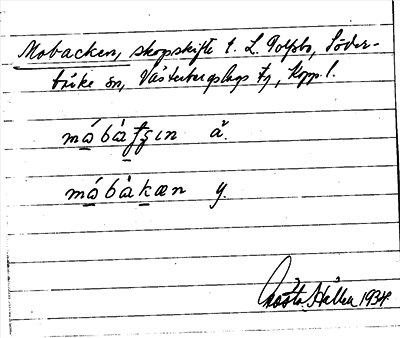 Mobacken, skogskifte t. L. Tolsbo, Söder-
bärke sn, Västerbergslags fg, Kopp. l.
mábàʈʂın ä.
mábàkæn y.
Gösta Hållen 1934.